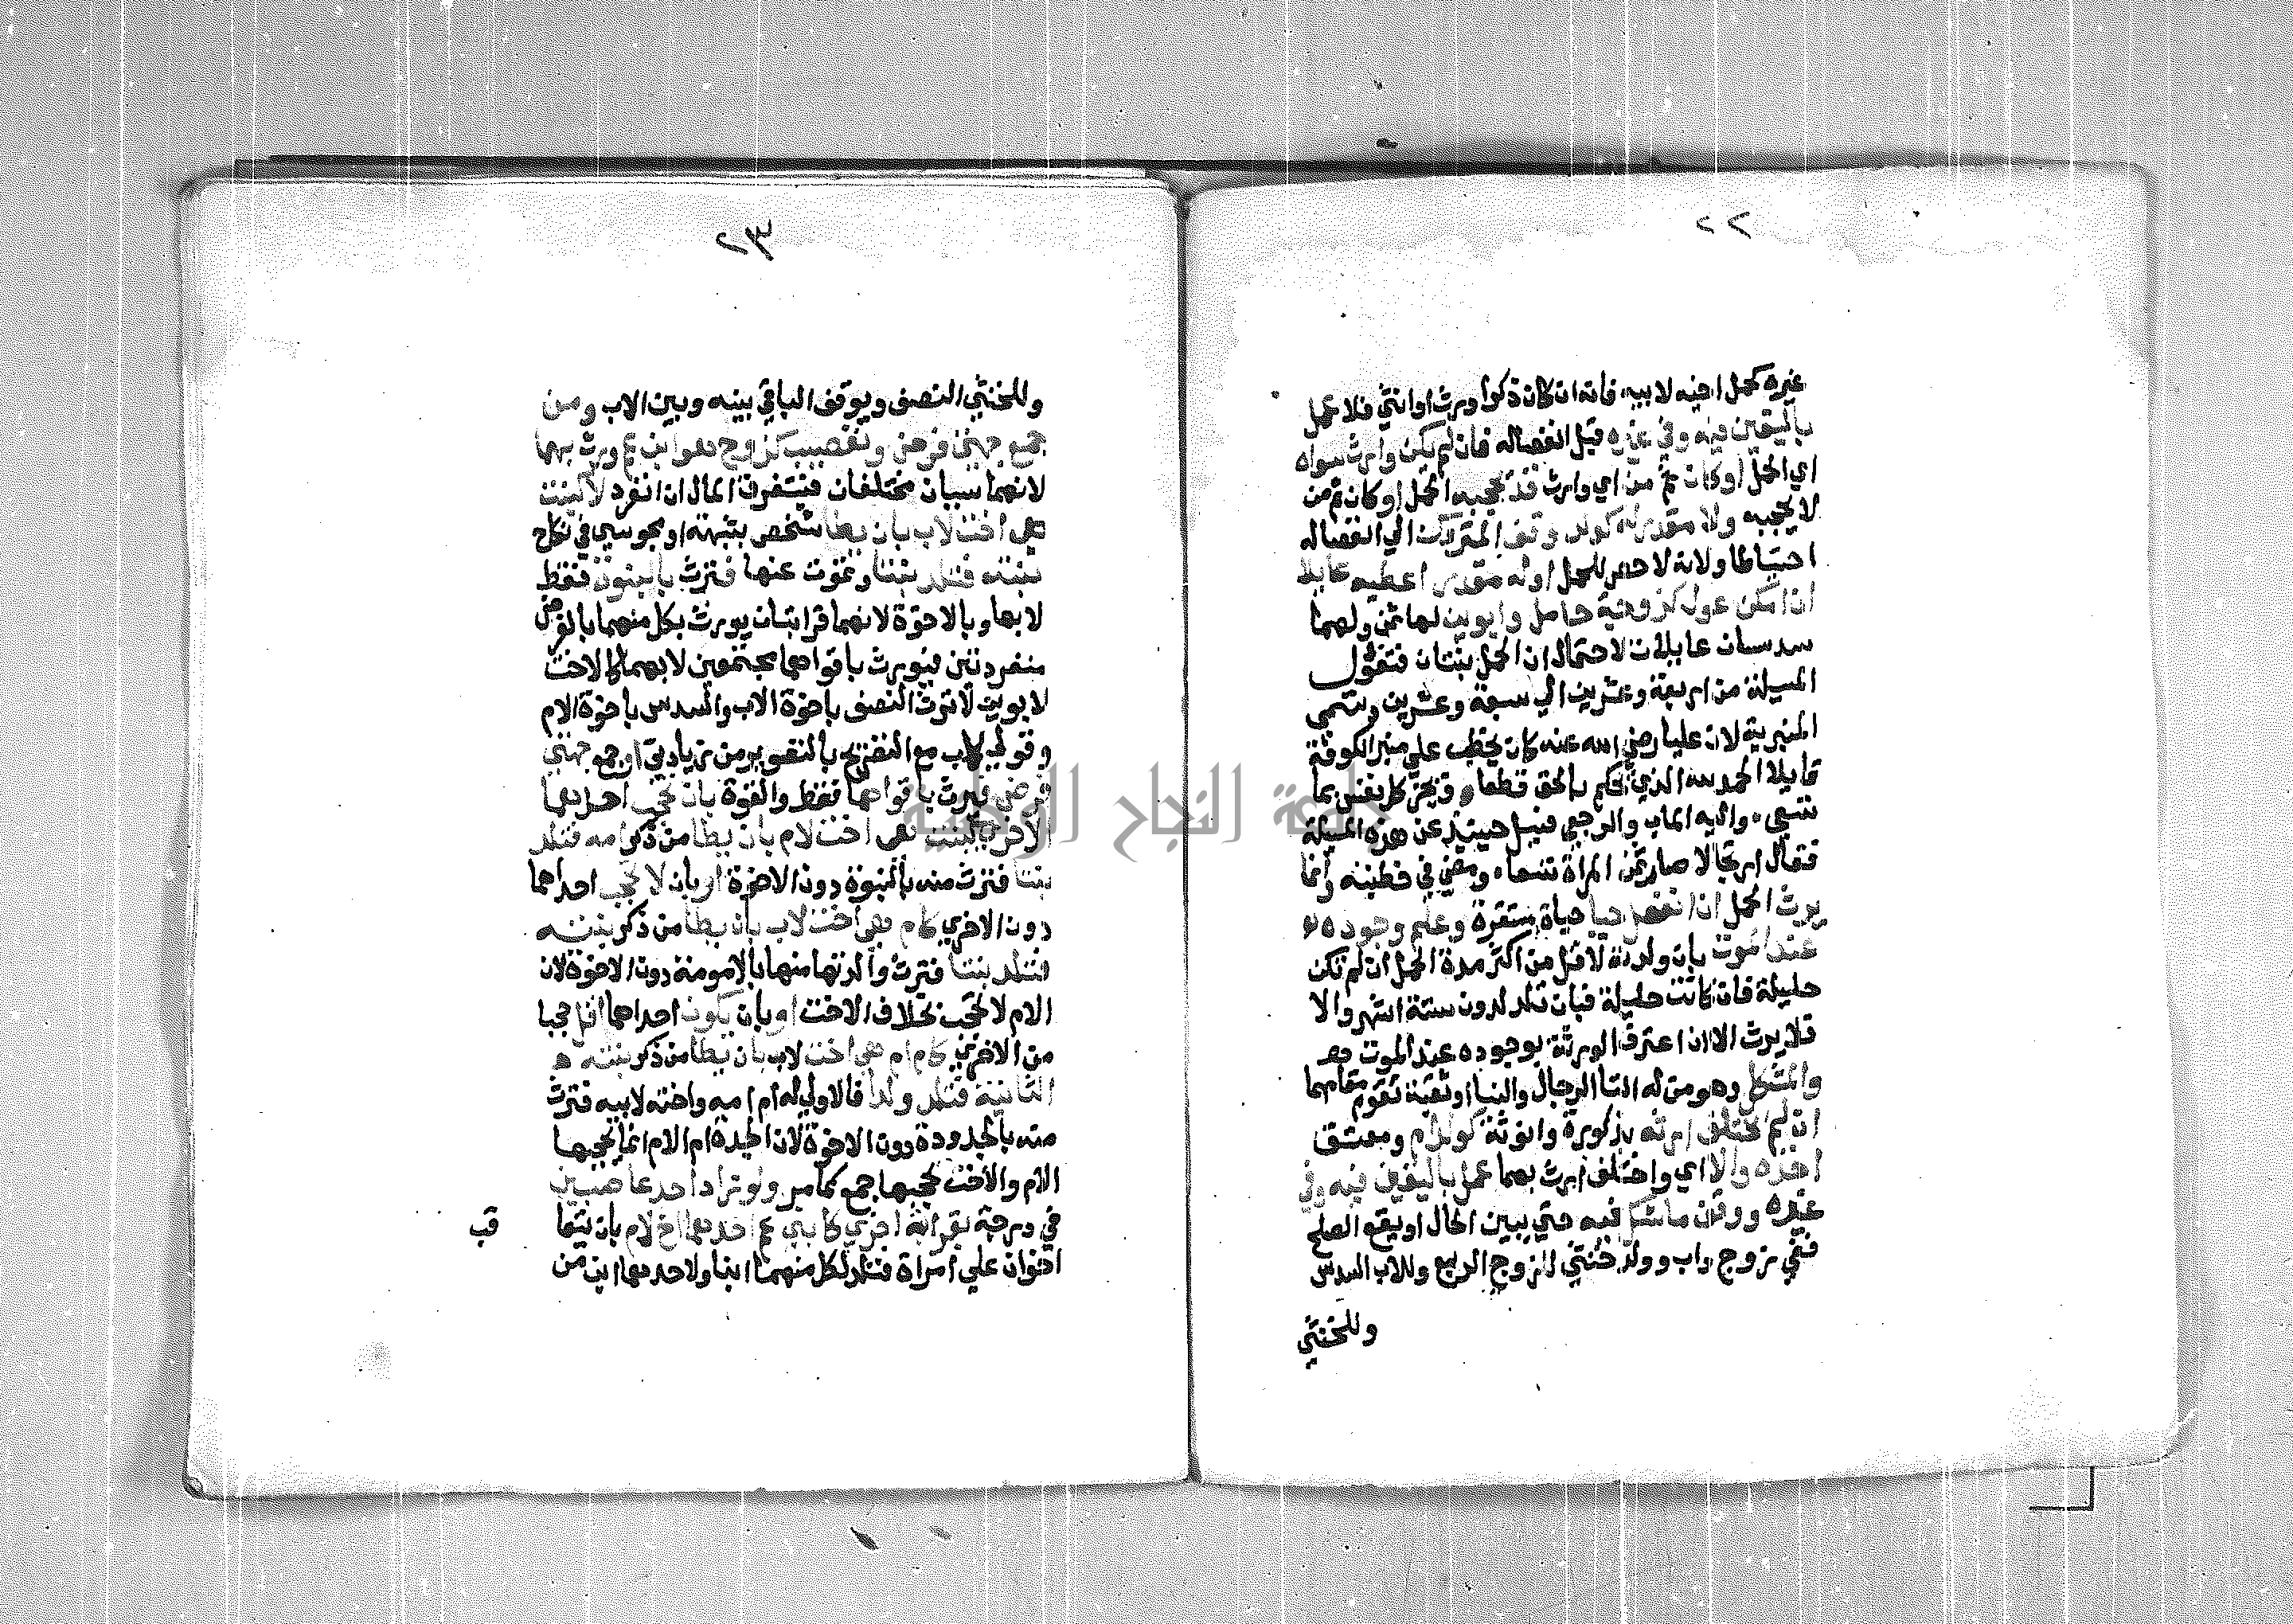 ٢٢
غيره كحمل اخيه لابيه فانه ان كان ذكرا ورث او انثي فلا عمل
باليقين فيه وفي غيره قبل انفصاله فان لم يكن وارث سواه
اي الحمل او كان ثم من اي وارث قد يحجبه الحمل او كان ثم من
لا يحجبه ولا مقدر له كولد وقف المتروك الي انفصاله
احتياطا ولانه لا حصر للحمل او له مقدر اعطيه عايلا
ان امكن عول كزوجة حامل وابوين لها ثمن ولهما
سدسان عايلات لاحتمال ان الحمل بنتان فتعول
المسيلة من اربعة وعشرين الي سبعة وعشرين وتسمي
المنبرية لان عليا رضي الله عنه كان يخطب علي منبر الكوفة
قايلا الحمد لله الذي يحكم بالحق قطعا ويجزي كل نفس بما
تسعي واليه الماب والرجعي فسيل حينيذ عن هذه المسيلة
فقال ارتجالا صار ثمن المراة تسعا ومضي في خطبته وانما
يرث الحمل ان انفصل حيا حياة مستقرة وعلم وجوده
عند الموت بان ولدته لاقل من اكثر مدة الحمل ان لم تكن
حليلة فان كانت حليلة فبان تلد لدون ستة اشهر والا
فلا يرث الا ان اعترف الورثة بوجوده عند الموت
والمشكل وهو من له التا الرجال والنسا او ثقبة تقوم مقامهما
ان لم يختلف ارثه بذكورة وانوثة كولد ام ومعتق
اخذه والا اي واختلف ارث بهما عمل باليقين فيه وفي
غيره ووقف ما شك فيه حتي يبين الحال او يقع الصلح
ففي زوج واب وولد خنثي للزوج الربع وللاب السدس
وللخنثي
٢٣
وللخنثي النصف ويوقف الباقي بينه وبين الاب ومن
جمع جهتي فرض وتعصيب كزوج هو ابن عم ورث بهما
لانهما سببان مختلفان فيستغرق المال ان انفرد لا كبنت
هي اخت لاب بان يطا شخص بشبهة او مجوسي في نكاح
بنته فتلد بنتا وتموت عنها فترث بالبنوة فقط
لا بها وبالاخوة لانهما قرابتان يورث بكل منهما بالفرض
منفردتين فيورث باقواهما مجتمعين لا بهما كالاخت
لابوين لا ترث النصف باخوة الاب والسدس باخوة الام
وقولي لاب مع التفريع بالتصوير من زيادتي او جهتي
فرض فيرث باقواهما فقط والقوة بان تحجب احداهما
الاخري كبنت هي اخت لام بان يطا من ذكر امه فتلد
بنتا فترث منه بالبنوة دون الاخوة او بان لا تحجب احداهما
دون الاخري كام هي اخت لاب بان يطا من ذكر بنته
فتلد بنتا فترث والدتها منها بالامومة دون الاخوة لان
الام لا تحجب بخلاف الاخت او بان تكون احداهما اقل حجبا
من الاخري كام ام هي اخت لاب بان يطا من ذكر بنته
الثانية فتلد ولدا فالاولي له ام امه واخته لابيه فترث
منه بالجدودة دون الاخوة لان الجدة ام الام انما يحجبها
الام والاخت يحجبها جمع كما مر ولو زاد احد عاصبين
في درجة بقرابة اخري كابني عم احدهما اخ لام بان يتعاقب
اخوان علي امراة فتلد لكل منهما ابنا ولاحدهما ابن من